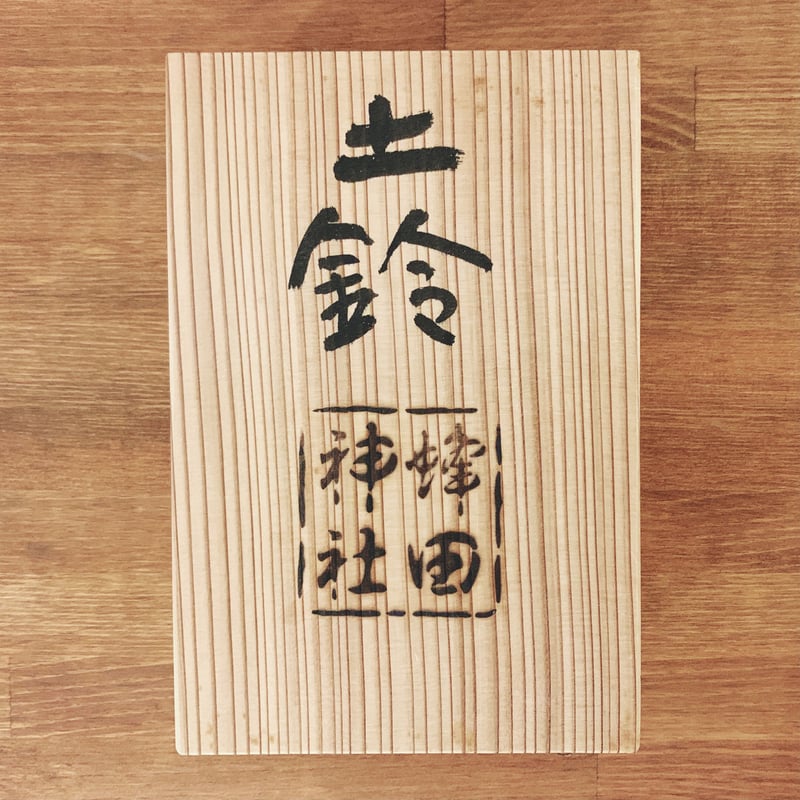 土鈴
蜂田
神社